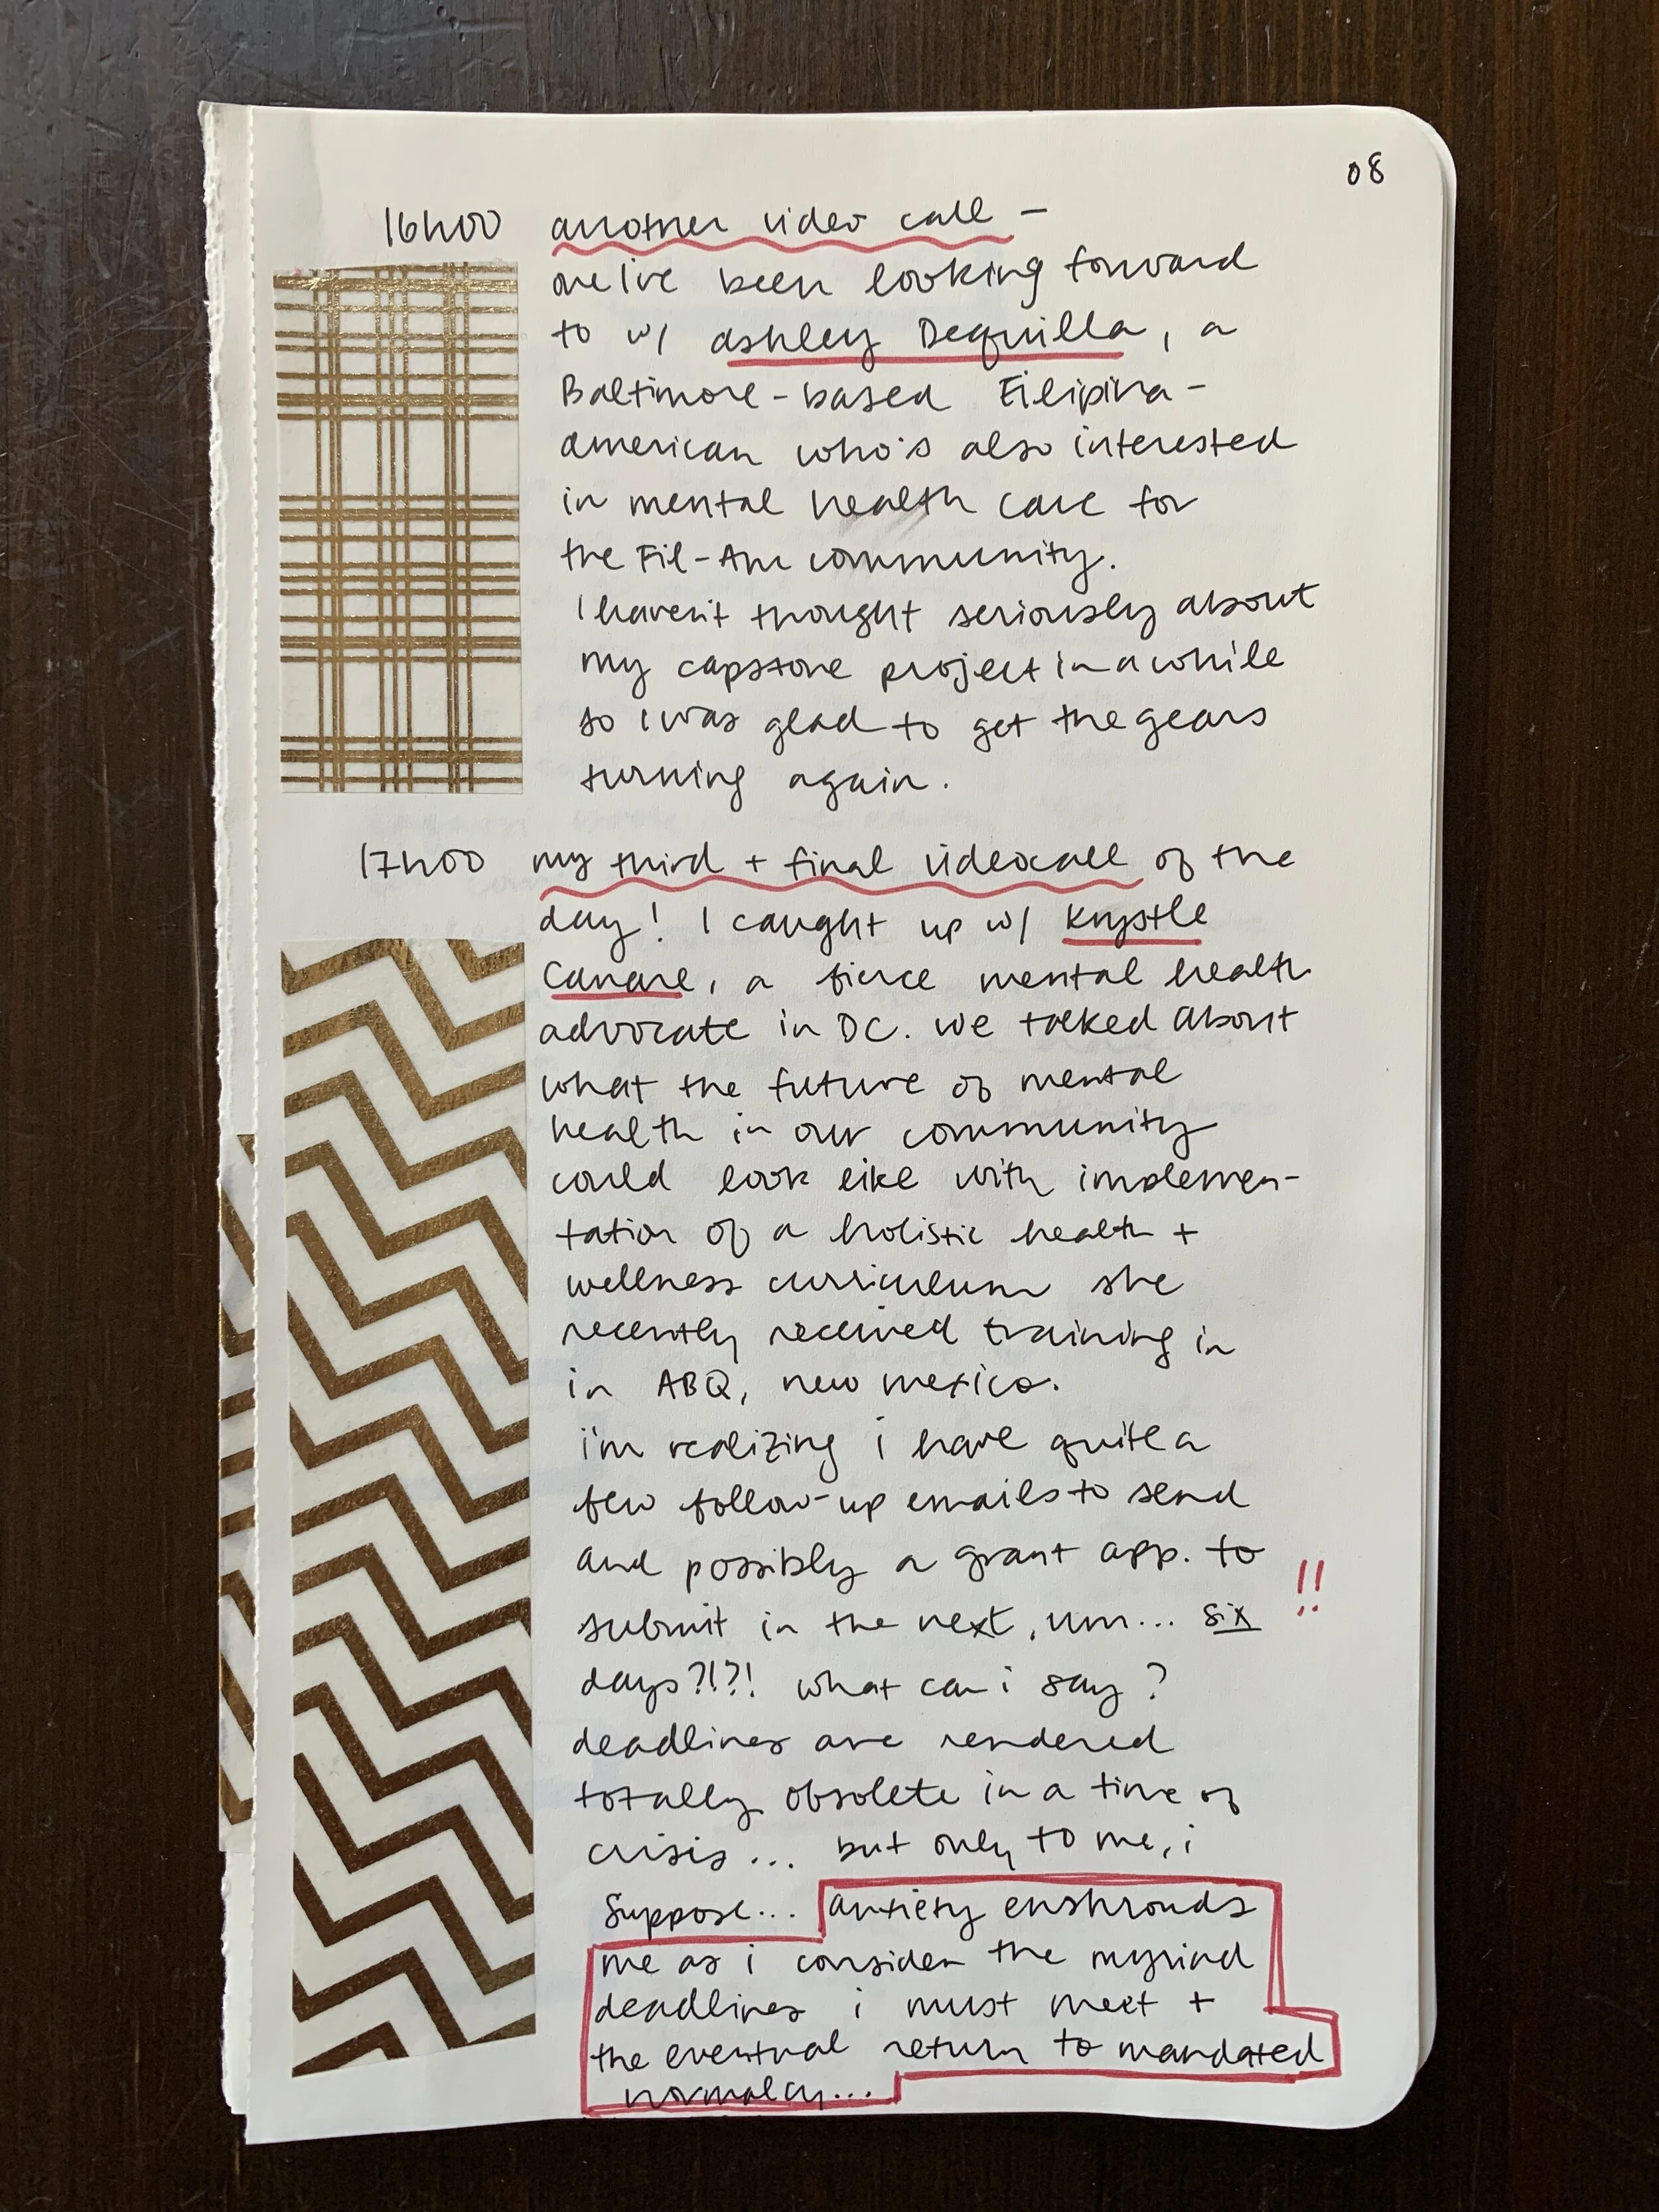 08
16h00 another video call –
one I've been looking forward
to w/ ashley Dequilla, a
Baltimore-based Filipina-
american who's also interested
in mental health care for
the Fil-Am community.
I haven't thought seriously about
my capstone project in a while
so I was glad to get the gears
turning again.
17h00 my third + final videocall of the
day! I caught up w/ Krystle
Canare, a fierce mental health
advocate in DC. we talked about
what the future of mental
health in our community
could look like with implemen-
tation of a holistic health +
wellness curriculum she
recently received training in
in ABQ, new mexico.
i'm realizing i have quite a
few follow-up emails to send
and possibly a grant app. to !!
submit in the next, um... six
days?!?! what can i say?
deadlines are rendered
totally obsolete in a time of
crisis... but only to me, i
suppose... anxiety enshrouds
me as i consider the myriad
deadlines i must meet +
the eventual return to mandated
normalcy...